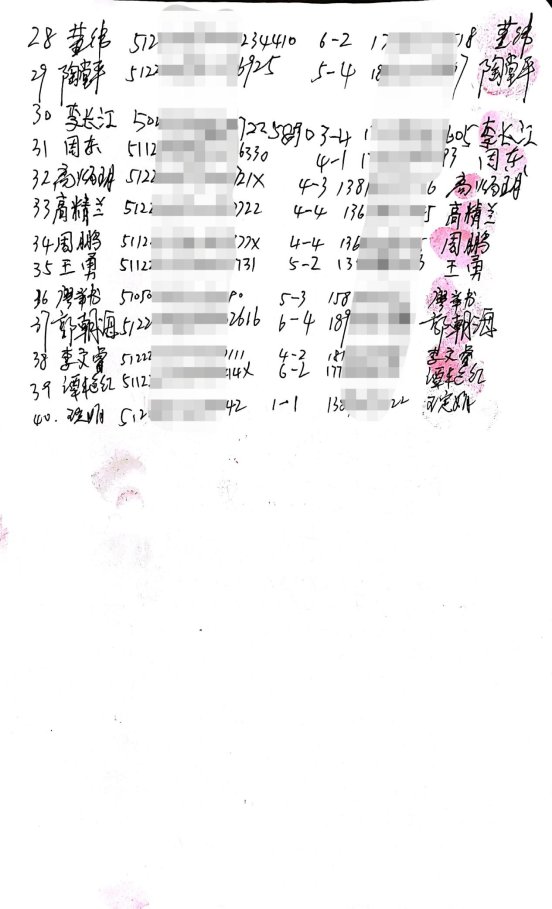 28 董纬 512 234410 6-2 17 18 董纬
29 陶 平 5122 6925 5-4 18 7 陶 平
30 李长江 50 722 5890 3-4 1 605 李长江
31 周东 5112 6330 4-1 1 93 周东
32 高 玥 5122 21X 4-3 138 6 高 玥
33 高精兰 5122 722 4-4 136 5 高精兰
34 周鹏 5112 77X 4-4 136 5 周鹏
35 王勇 51122 731 5-2 13 3 王勇
36 廖 51050 90 5-3 158 廖
37 郭朝海 5122 2616 6-4 189 郭朝海
38 李文 51222 111 4-2 181 李文
39 谭 红 5112 14X 6-2 177 谭 红
40. 明 512 42 1-1 138 22 明